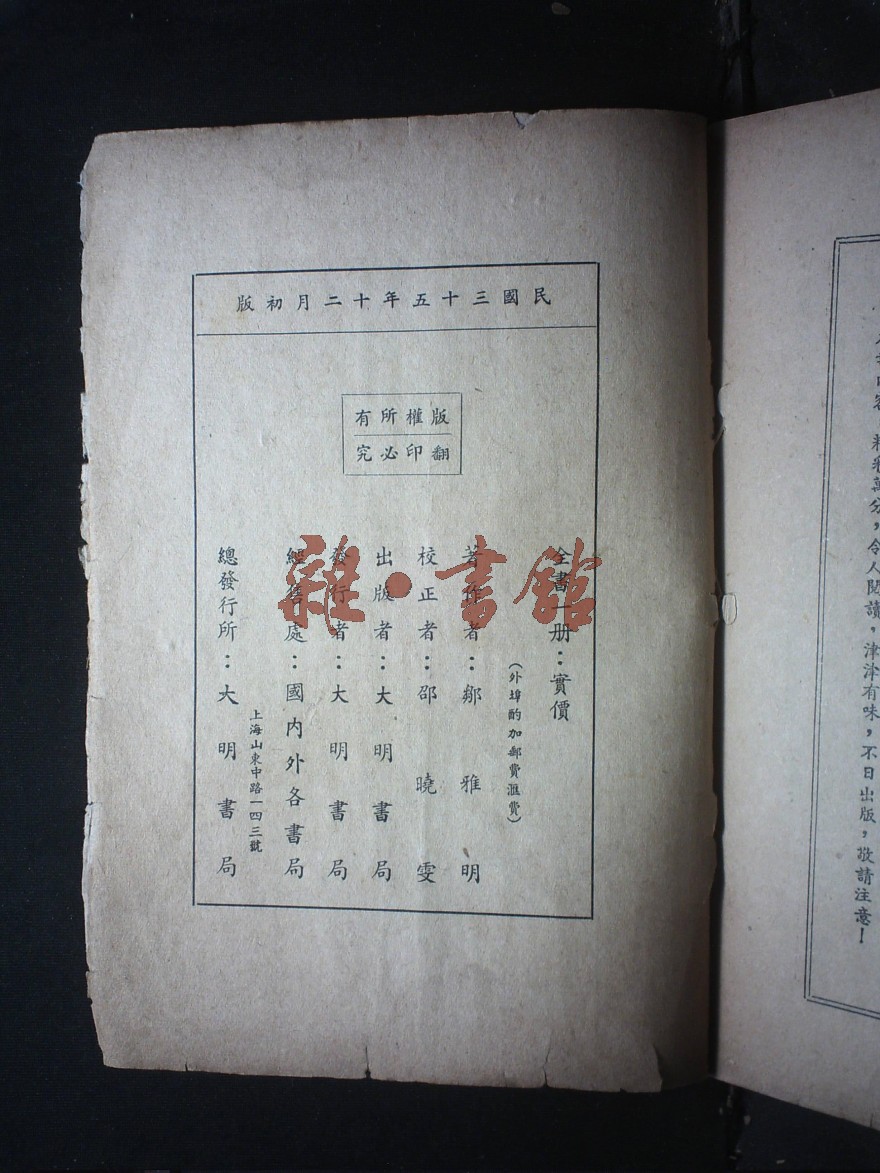 民國三十五年十二月初版
版權所有
翻印必究
全書一册：實價
（外埠酌加郵費滙費）
著作者：鄒雅明
校正者：邵曉雯
出版者：大明書局
發行者：大明書局
經售處：國內外各書局
上海山東中路一四三號
總發行所：大明書局
雜·書館
精彩萬分，令人閱讀，津津有味，不日出版，敬請注意！